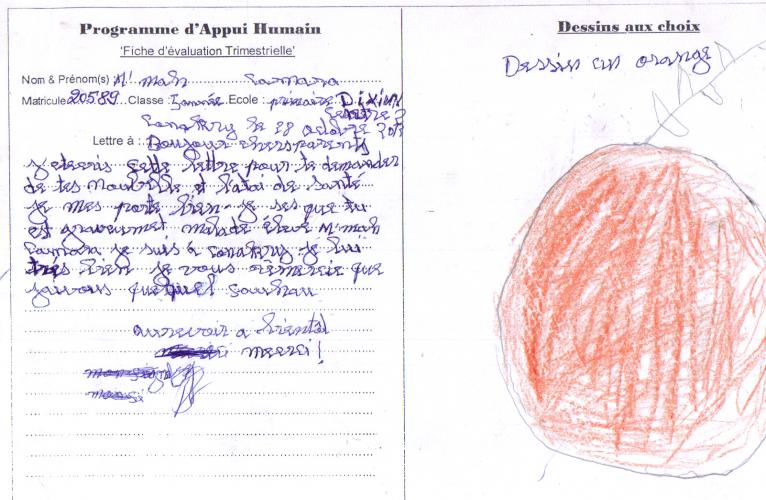 Programme d'Appui Humain
'Fiche d'évaluation Trimestrielle'
Nom & Prénom(s) M'mah Camara
Matricule 20589 Classe : 3année Ecole : primaire Dixinn
centre 2
Conakry le 28 octobre
Lettre à : Bonjour chers parents
J'eteris cette lettre pour te demander
de tes nouvelle et l'atai de santé
je mes porte bien. je ses que tu
est gravement malade élève M'mah
Camara je suis à Conakry je lui
tres bien je vous remercie que
javous quelque souhau
aurevoir a bientôt
merci !
Dessins aux choix
Dessin en orange